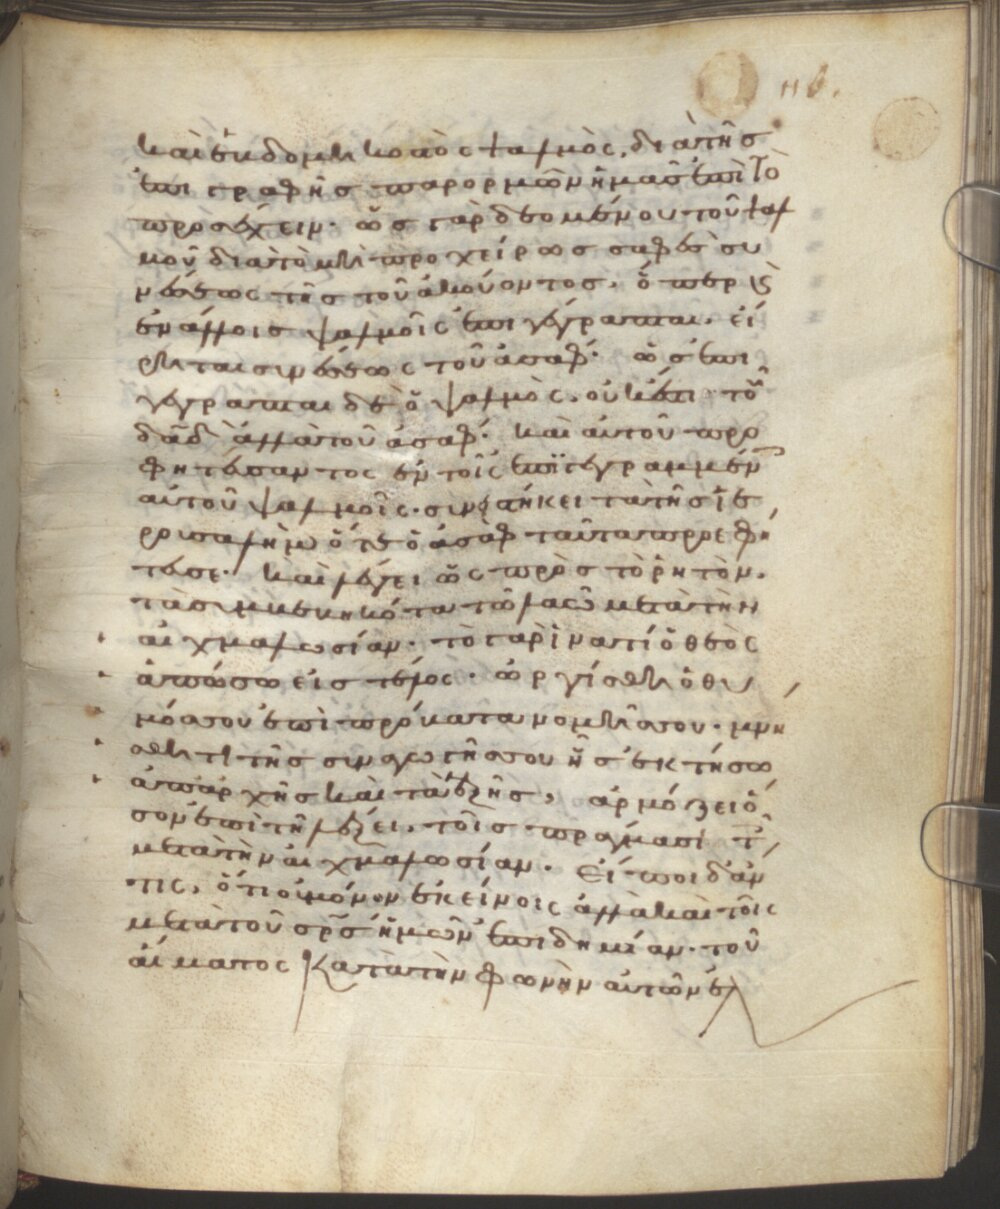 νβ.
καὶ ἑβδομηκοστὸς ψαλμὸς, διὰ τῆς
ἐπιγραφῆς παρορμῶν ἡμᾶς ἐπὶ τὸ
προσέχειν. ὡς γὰρ δεομένου τοῦ ψαλ
μοῦ διὰ τὸ μὴ προχείρως σαφὲς συ
νέσεως τῆς τοῦ ἀκούοντος, ὅπερ καὶ
ἐν ἄλλοις ψαλμοῖς ἐπιγέγραπται. εἴ
ρηται συνέσεως τοῦ ἀσάφ. ὡς ἐπι
γέγραπται δὲ ὁ ψαλμὸς, οὐκέτι τοῦ
δαδ ἀλλὰ τοῦ ἀσάφ. καὶ αὐτοῦ προ
φητεύσαντος ἐν τοῖς ἐπϊγεγραμμέν
αὐτοῦ ψαλμοῖς. τὰ τῆς ἱε
ρουσαλὴμ ὅτε ὁ ἀσὰφ ταῦτα προεφή
τευσε. καὶ λέγει ὡς πρὸς τὸ ῥητὸν.
τὰ συμβεβηκότα τῶ λαῶ μετὰ τὴν
αἰχμαλωσίαν. τὸ γὰρ ἱνατί ὁ θεὸς
ἀπώσω εἰς τέλος. ὠργίσθη ὁ θυ
μός σου ἐπὶ πρόβατα νομῆς σου. μνή
σθητι τῆς συναγωγῆς σου ἧς ἐκτήσω
ἀπαρχῆς καὶ τὰ ἑξῆς, ἁρμόζει ὅ
σον ἐπὶ τῆ λέξει, τοῖς πράγμασι τ
μετὰ τὴν αἰχμαλωσίαν. εἴποι δ' ἄν
τις, ὅτι οὐ μόνον ἐκείνοις ἀλλὰ καὶ τοῖς
μετὰ τοῦ σρς ἡμῶν ἐπιδημίαν. τοῦ
αἵματος κατὰ τὴν φωνὴν αὐτῶν